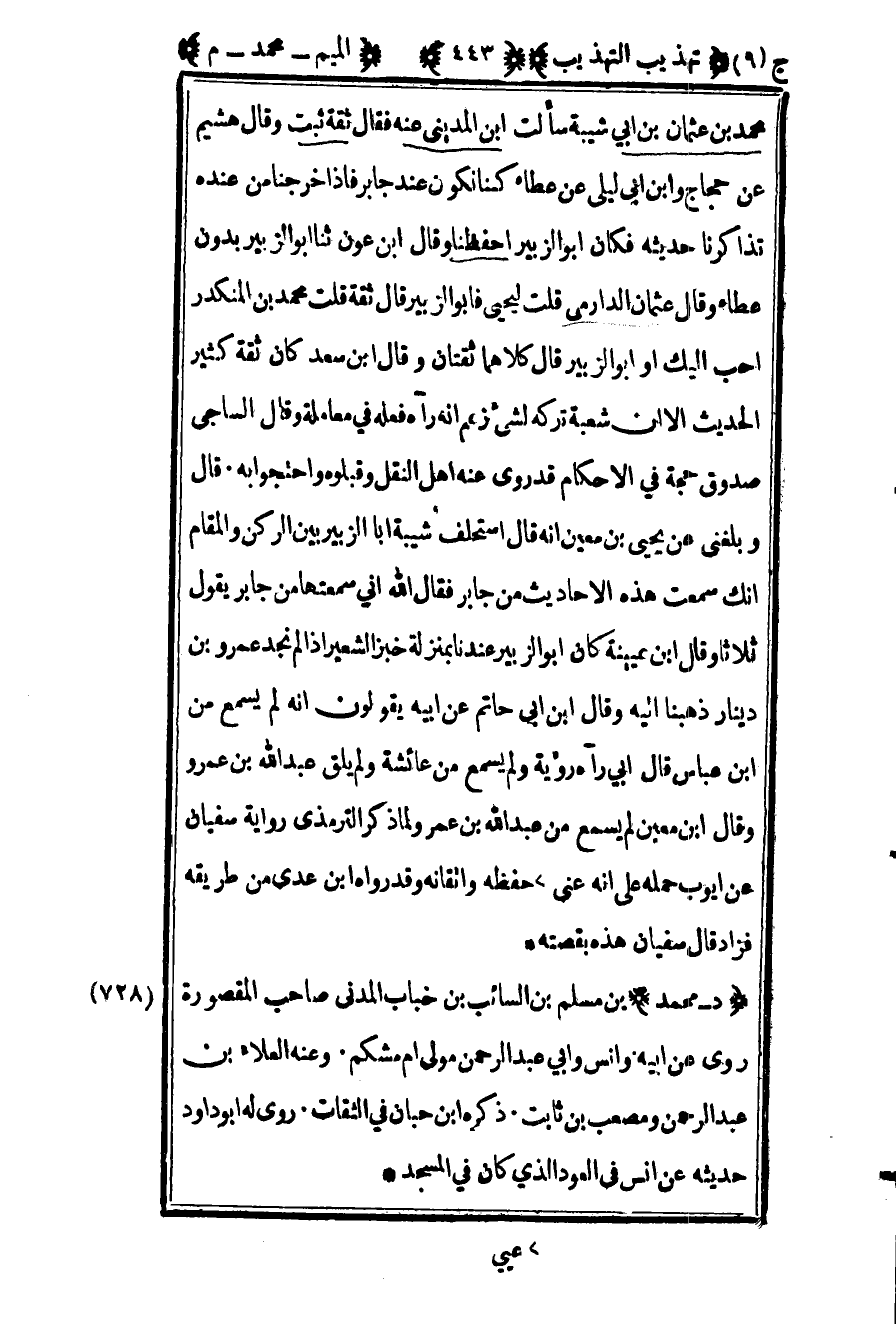 ج (٩) ﴿ تهذيب التهذيب ﴾ ﴿ ٤٤٣ ﴾ ﴿ الميم ـ محمد ـ م ﴾
محمد بن عثمان بن ابي شيبة سألت ابن المديني عنه فقال ثقة ثبت وقال هشيم
عن حجاج وابن ابى ليلى عن عطاء كنا نكون عند جابر فاذا خرجنا من عنده
تذاكرنا حديثه فكان ابو الزبير احفظنا وقال ابن عون ثنا ابو الزبير بدون
عطاء وقال عثمان الدارمى قلت ليحيى فابو الزبير قال ثقة قلت محمد بن المنكدر
احب اليك او ابو الزبير قال كلاهما ثقتان وقال ابن سعد كان ثقة كثير
الحديث الا ان شعبة تركه لشئ زعم انه رآه فعله في معاملة وقال الساجى
صدوق حجة في الاحكام قد روى عنه اهل النقل وقبلوه واحتجوا به٠ قال
وبلغنى عن يحيى بن معين انه قال استحلف شيبة ابا الزبير بين الركن والمقام
انك سمعت هذه الاحاديث من جابر فقال الله اني سمعتها من جابر يقول
ثلاثا وقال ابن عيينة كان ابو الزبير عندنا بمنزلة خبز الشعير اذا لم نجد عمرو بن
دينار ذهبنا اليه وقال ابن ابي حاتم عن ابيه يقولون انه لم يسمع من
ابن عباس قال ابي رآه رؤية ولم يسمع من عائشة ولم يلق عبد الله بن عمرو
وقال ابن معين لم يسمع من عبد الله بن عمر ولما ذكر الترمذى رواية سفيان
عن ايوب حمله على انه عني > حفظه واتقانه وقد رواه ابن عدى من طريقه
فزاد قال سفيان هذه بقصته *
﴿ د ـ محمد ﴾ بن مسلم بن السائب بن خباب المدنى صاحب المقصورة (٧٢٨)
روى عن ابيه٠ وانس وابي عبد الرحمن مولى ام مشكم٠ وعنه العلاء بن
عبد الرحمن ومصعب بن ثابت٠ ذكره ابن حبان في الثقات٠ روى له ابو داود
حديثه عن انس فى العود الذي كان في المسجد *
> عيي